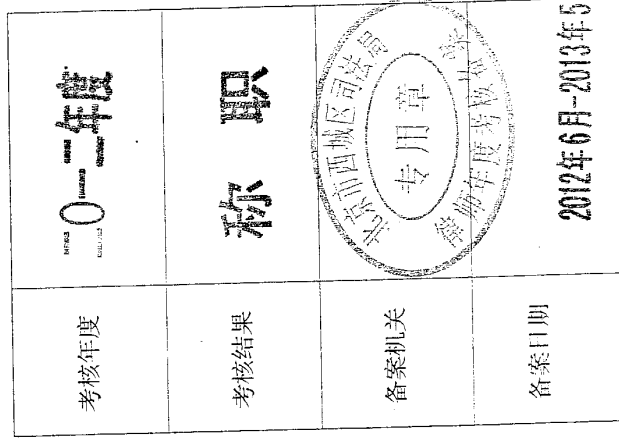 考核年度 二〇一二年度
考核结果 称职
备案机关 北京市西城区司法局
专用章
律师年度考核备案
备案日期 2012年6月-2013年5